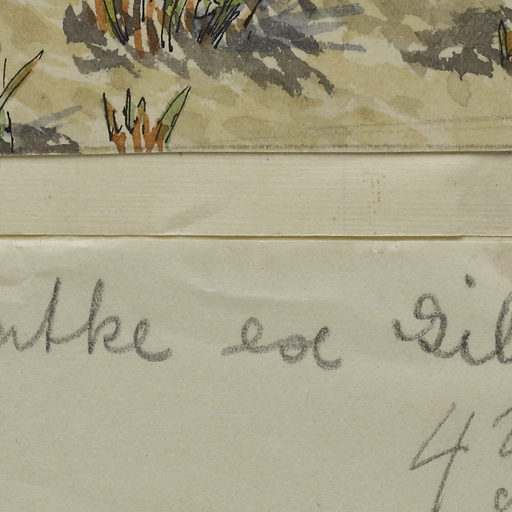 ntke ex Gil
4